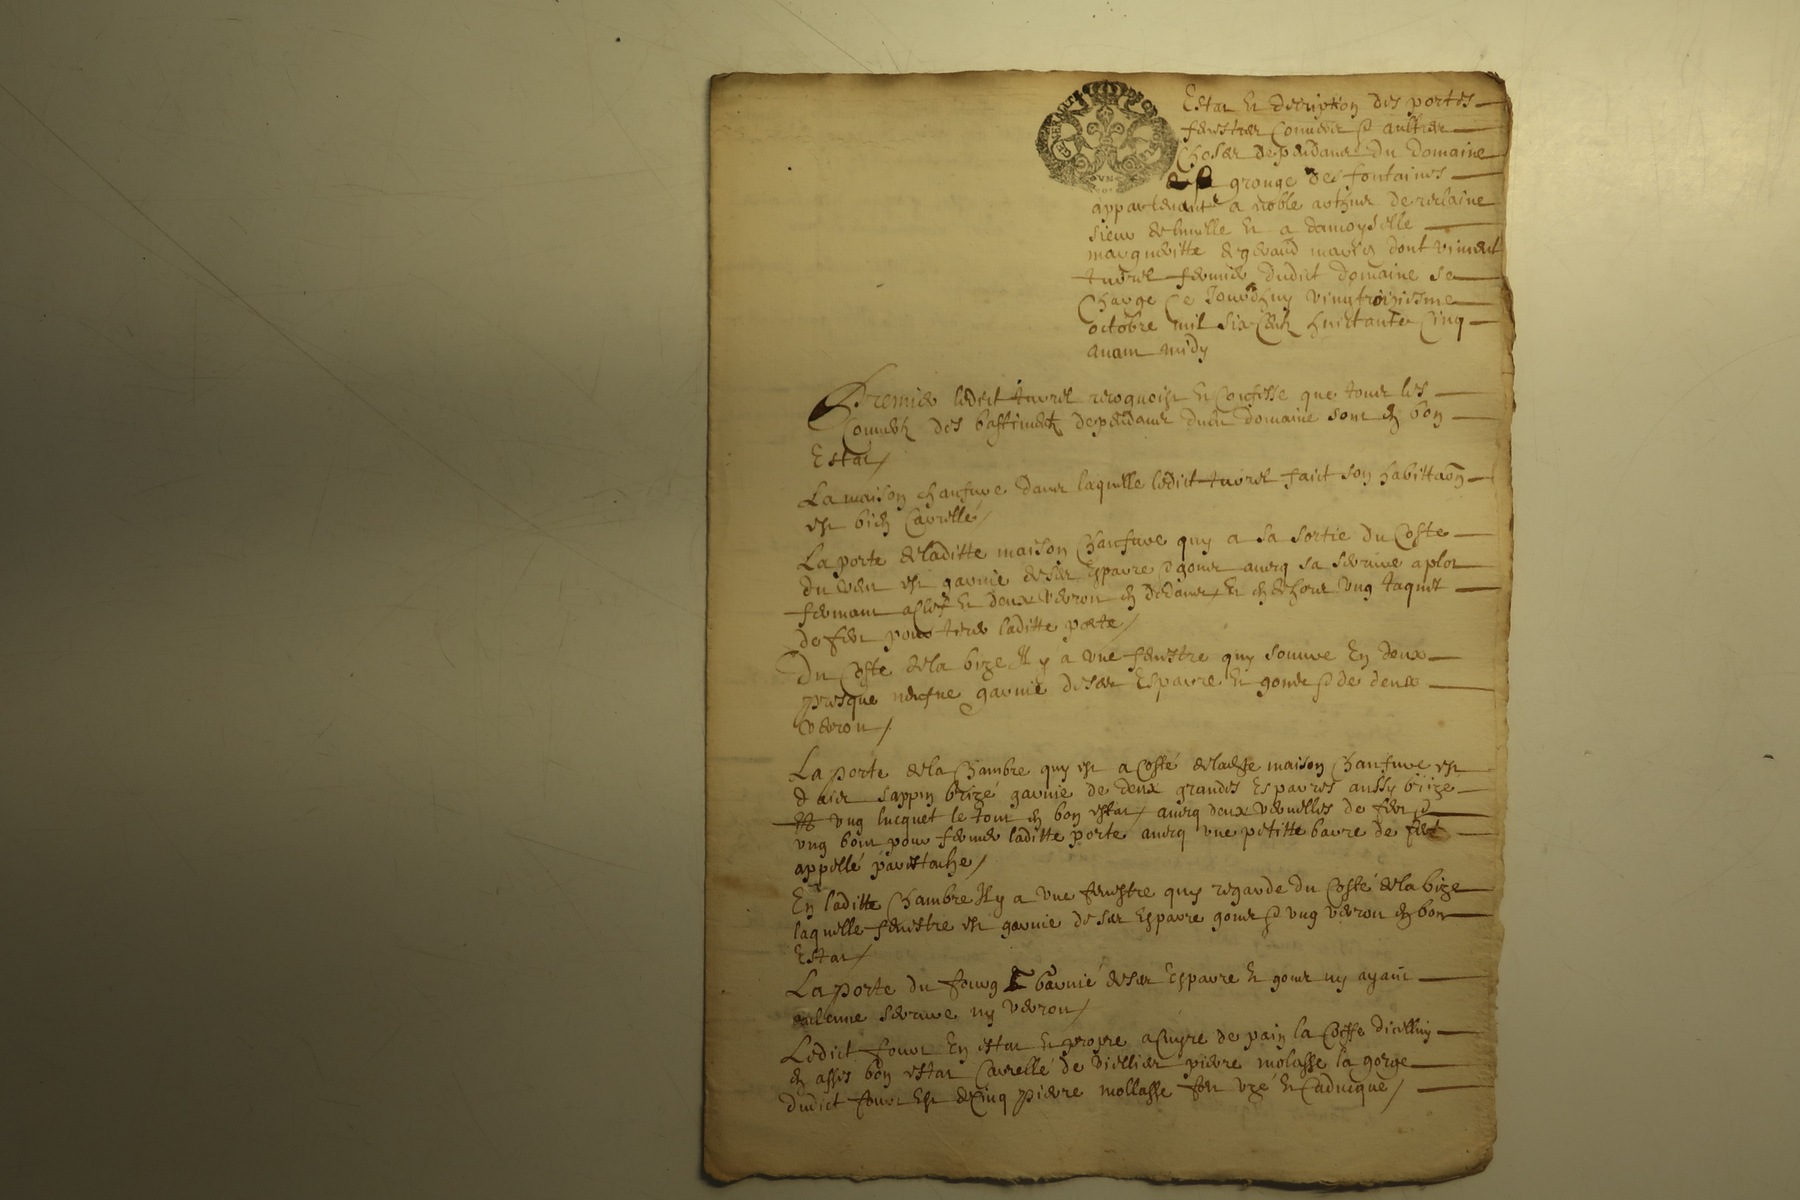 Estat et decription des portes
fenestres couverts & aultres
choses dependant du domaine
grange des fontaines
appartenant a noble arthur de
sieur de et a damoyselle
margueritte de dont vincent
turrel fermier dudict domaine se
charge ce jourdhuy vingtroisiesme
octobre mil six centz huictante cinq
avant midy
Premier ledict turrel recognoist et confesse que tout les
couvertz des bastimentz dependant dudit domaine sont en bon
Estat /
La maison chaufure dans laquelle ledict turrel faict son habittaon
est bien carrellé /
La porte de laditte maison chaufure quy a sa sortie du coste
du vent est garnie de ses Esparre & gonts avecq sa serrure a plot
fermant a clef et deux verroux en dedans, et en dehors ung taquet
de fert pour tirer laditte porte /
Du coste de la bize Il y a une fenestre quy souvre En deux
presque neufue garnie de ses Esparre et gonts & de deux
verroux /
La porte de la chambre quy est a costé de ladte maison chaufure est
d'aies sappin brizé garnie de deux grandes Esparres aussy brize
ung lucquet le tout en bon estat, avecq deux vervelles de fert &
ung bout pour fermer laditte porte avecq une petitte barre de fert
appellé parestache /
En laditte chambre Il y a une fenestre quy regarde du costé de la bize
laquelle fenestre est garnie de ses Esparre gonts & ung verroux en bon
Estat /
La porte du fourg garnié de ses Esparre et gonts ny ayant
aulcune serrure ny verroux /
Ledict fourt En estat et propre a cuyre de pain la coffe dicelluy
en asses bon estat carrellé de viellies pierre molasse la gorge
dudict fourt Est de cinq pierre mollasse fort uzé et caducque /